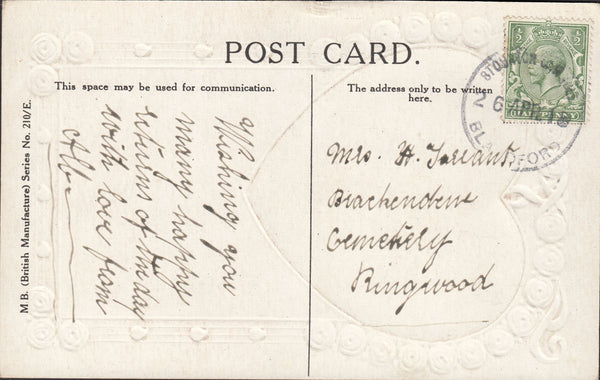 POST CARD.
This space may be used for communication.
The address only to be written
here.
M.B. (British Manufacture) Series No. 210/E.
Wishing you
many happy
returns of the day
with love from
Mrs. H. Tarrant
Brackendene
Cemetery
Ringwood
HALFPENNY
26 AP
BLANDFORD